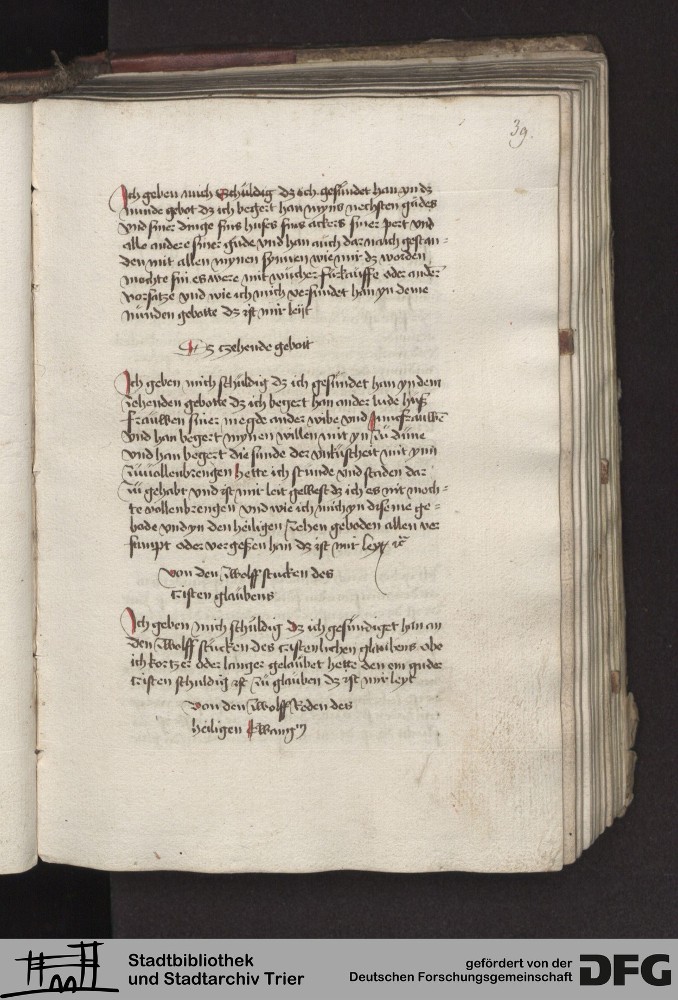 39.
Ich geben mich Schuldig dz ich gesundet han yn dz
nunde gebot dz ich begert han myns nechsten gudes
vnd siner dinge sins huses sins ackers siner pert vnd
alle andere siner gude vnd han auch dar nach gestan-
den mit allen mynen synnen wie mir dz worden
mochte sin es were mit wucher furkauffe oder ander
vorsatze vnd wie ich mich versundet han yn deme
nunden gebotte dz ist mir leyt
Dz czehende gebott
Ich geben mich schuldig dz ich gesundet han yn dem
zehenden gebotte dz ich begert han ander lude huß
frauwen siner megde ander wibe vnd Jungfrauwen
vnd han begert mynen willen mit yn zu dune
vnd han begert die sunde der vnkuscheit mit ynn
zuuollenbrengen hette ich stunde vnd staden dar
zu gehabt vnd ist mir leit gewest dz ich es nit moch-
te vollenbrengen vnd wie ich mich yn diseme ge-
bode vnd yn den heiligen zehen geboden allen ver
sumpt oder vergeßen han dz ist mir leyt
von den zwolff stucken des
cristen glaubens
Ich geben mich schuldig dz ich gesundiget han an
den zwolff stucken des cristenlichen glaubens obe
ich kortzer oder langer gelaubet hette den ein guder
cristen schuldig ist zu glauben dz ist mir leyt
von den zwolff Reden des
heiligen Ewang
Stadtbibliothek
und Stadtarchiv Trier
gefördert von der
Deutschen Forschungsgemeinschaft
DFG